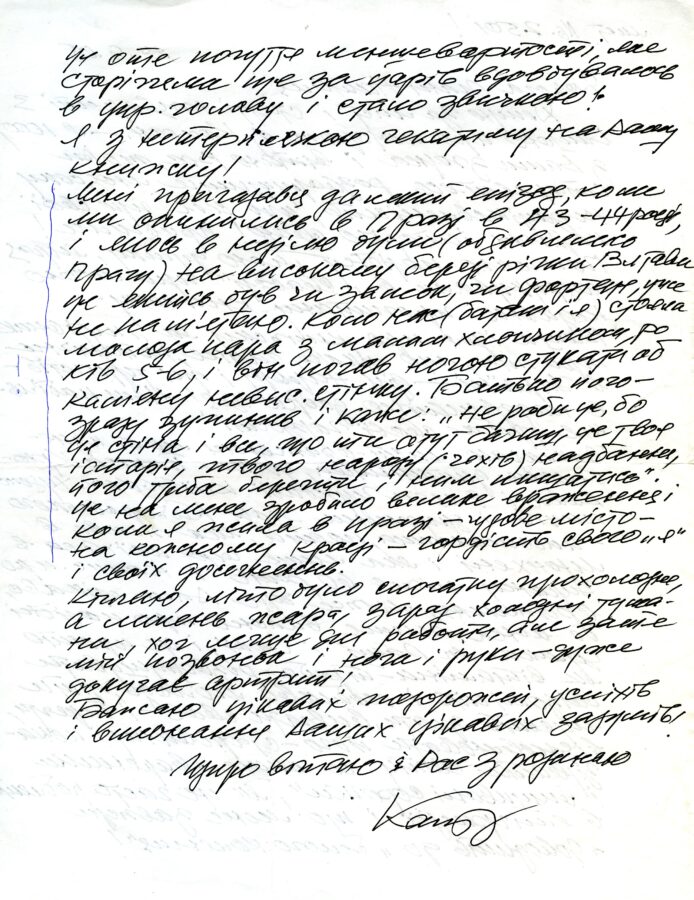 Чи оте почуття меншевартости, яке
сторіками ще за царів вдовбувалось
в укр. голову і стало звичкою!
Я з нетерплячкою чекатиму на Вашу
книжку!
Мені пригадався давній епізод, коли
ми опинились в Празі в 43-44 році,
і якось в неділю були (об
Прагу) на високому березі річки Влтави
це якийсь був чи замок, чи фортеця, уже
не пам'ятаю. Коло нас (батько і я) стояла
молода пара з малим хлопчиком, ро-
ків 5-6, і він почав ногою стукати об
кам'яну невис. стінку. Батько його
зразу зупинив і каже: „Не роби це, бо
це стіна і все, що ти отут бачиш, це твоя
історія, твого народу (чехів) надбання,
його треба берегти і ним пишатись".
Це на мене зробило велике враження і
коли я жила в Празі – чудове місто –
на кожному кроці – гордість свого „я"
і своїх досягнень.
Кінчаю, літо було спочатку прохолодне,
а липень жара, зараз холодні тума-
ни, хоч легше для работи, але
мій позвонок і нога і руки – дуже
докучає артрит!
Бажаю цікавих подорожей, успіхів
і виконання Ваших цікавих задумів!
Щиро вітаю Вас з родиною